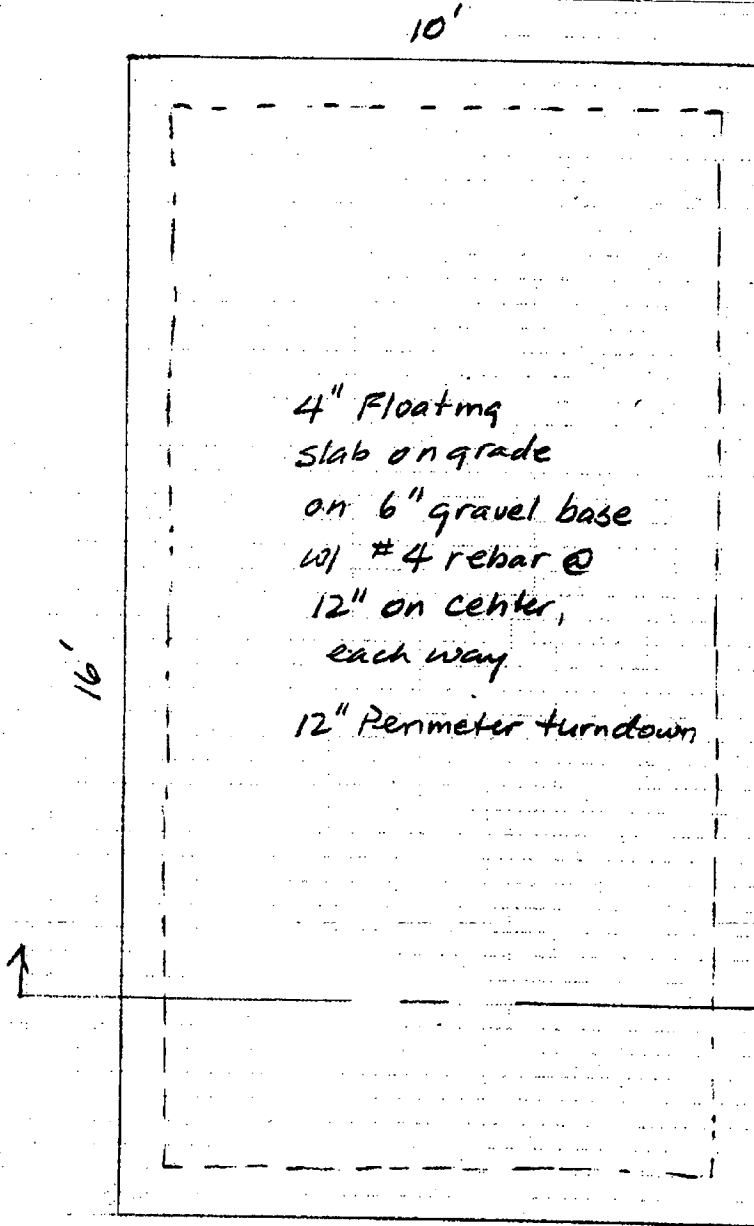 10'
4" Floating
slab on grade
on 6" gravel base
w/ #4 rebar @
12" on center,
each way
16'
12" Perimeter turndown